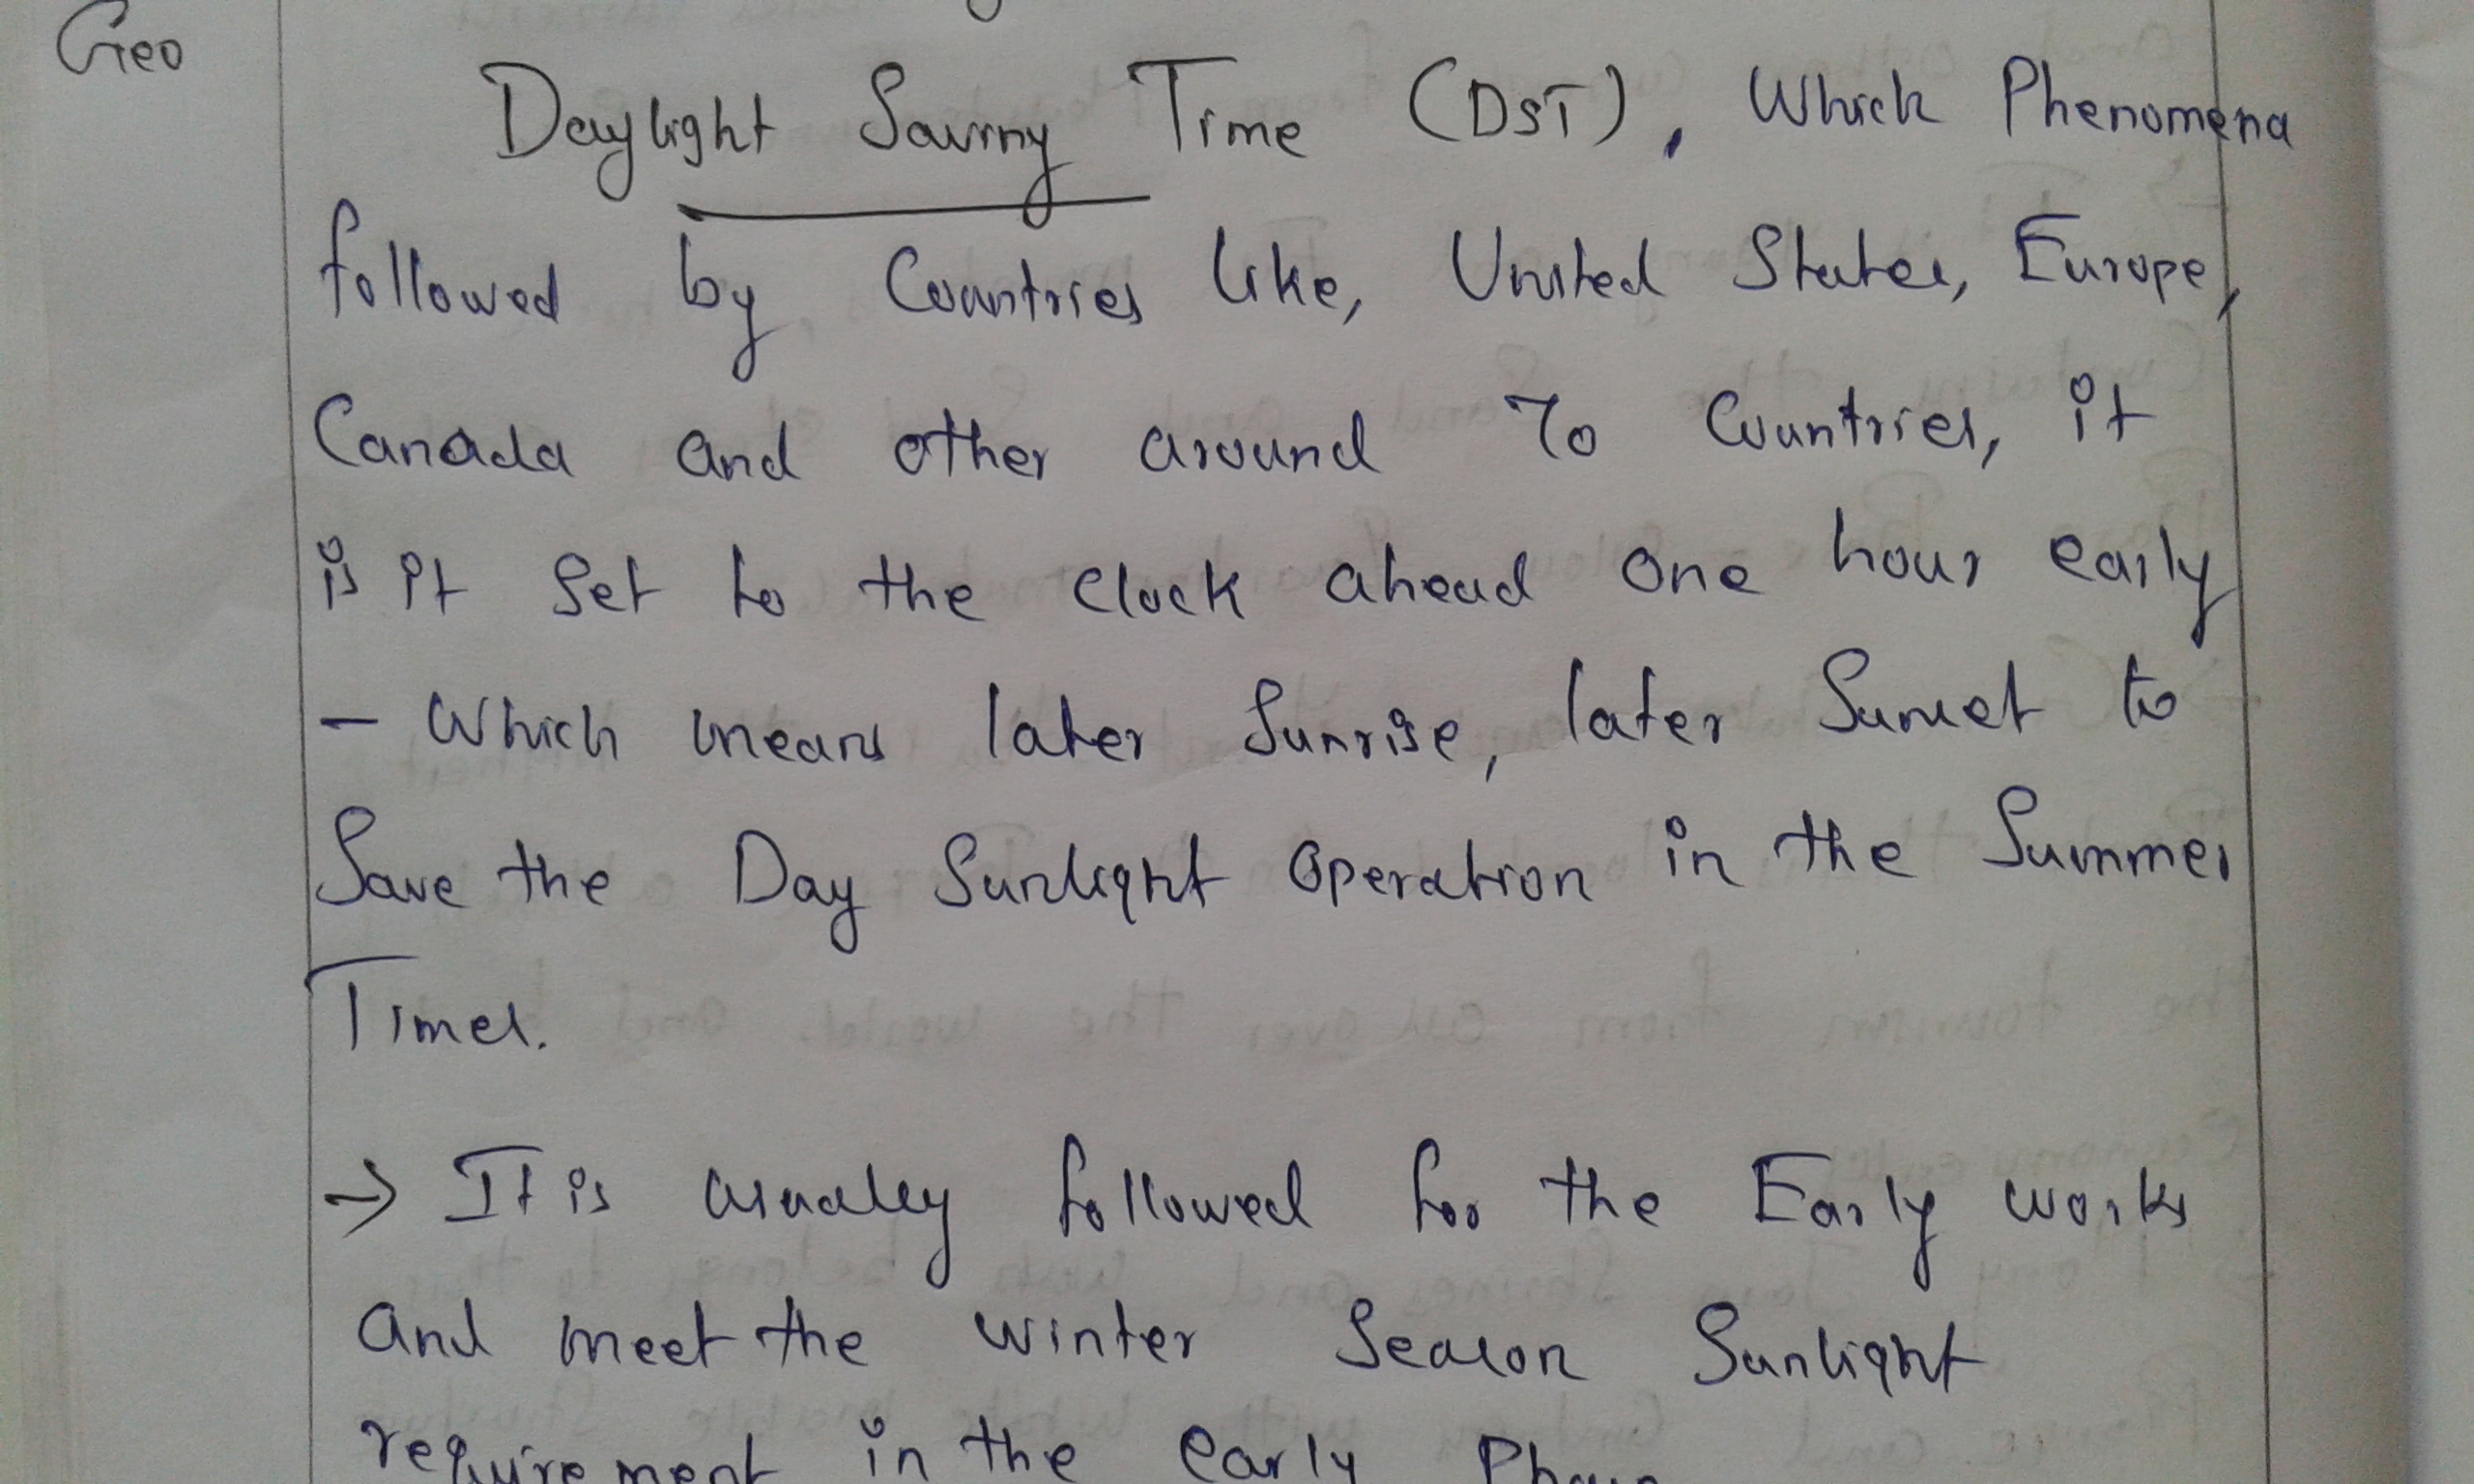 Geo
Daylight Saving Time (DST), Which Phenomena
followed by Countries like, United States, Europe,
Canada and other around 70 Countries, it
is it set to the clock ahead one hour early
- Which means later Sunrise, later Sunset to
Save the Day Sunlight operation in the Summer
Times.
→ It is usually followed for the Early works
and meet the winter Season Sunlight
requirement in the early